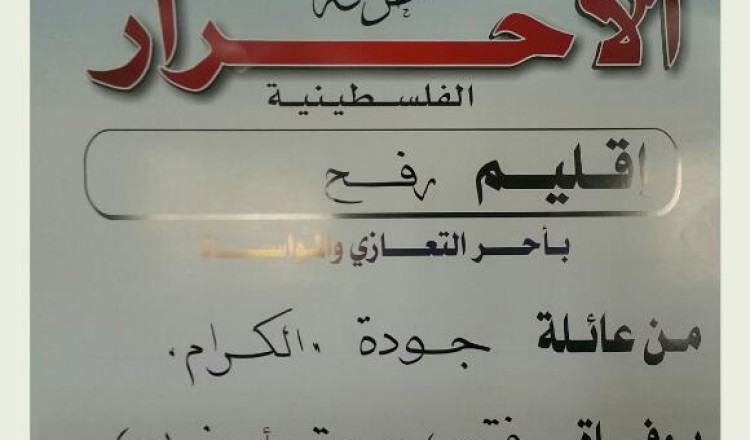 حركة
الأحرار
الفلسطينية
إقليم رفح
بأحر التعازي والمواساة
من عائلة جودة "الكرام"